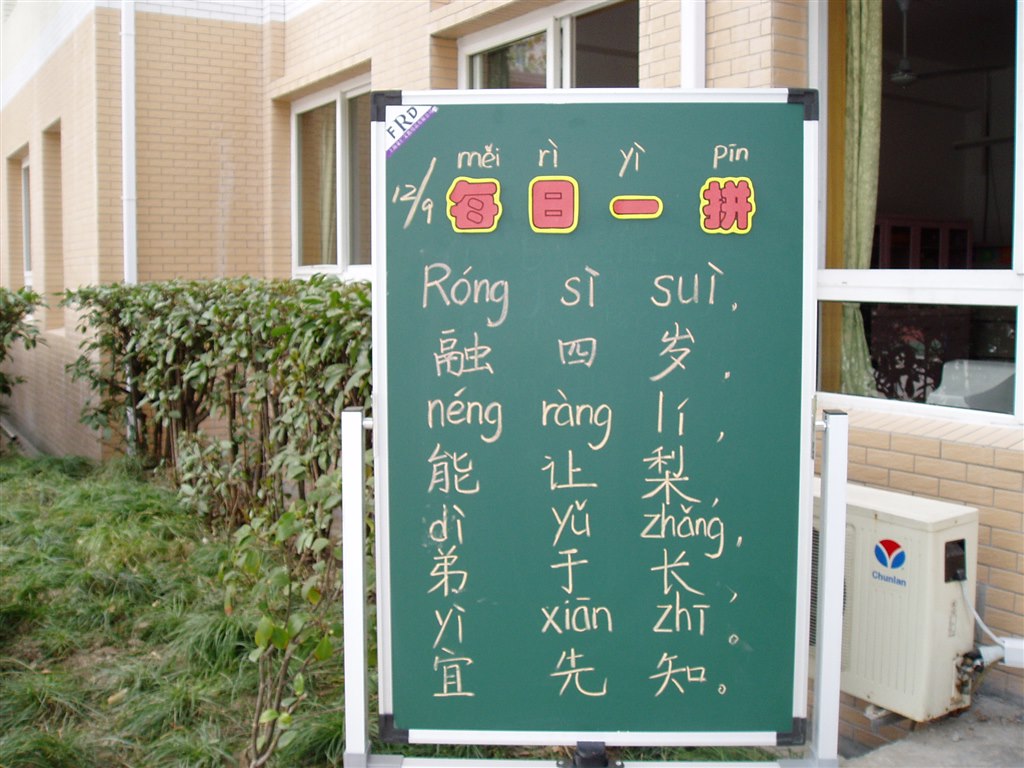 FRD
měi rì yì pīn
12/9 每日一拼
Róng sì suì,
融 四 岁,
néng ràng lí,
能 让 梨,
dì yǔ zhǎng,
弟 于 长,
yì xiān zhī。
宜 先 知。
Chunlan